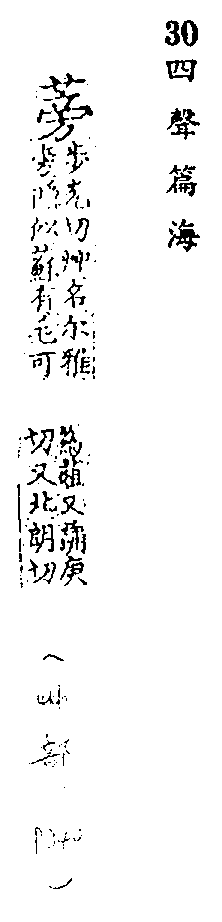 30 四聲篇海
蒡
步光切艸名尔雅
蒡隱似蘇有毛可
為葅又蒲庚
切又北朗切
(艸部 P340)